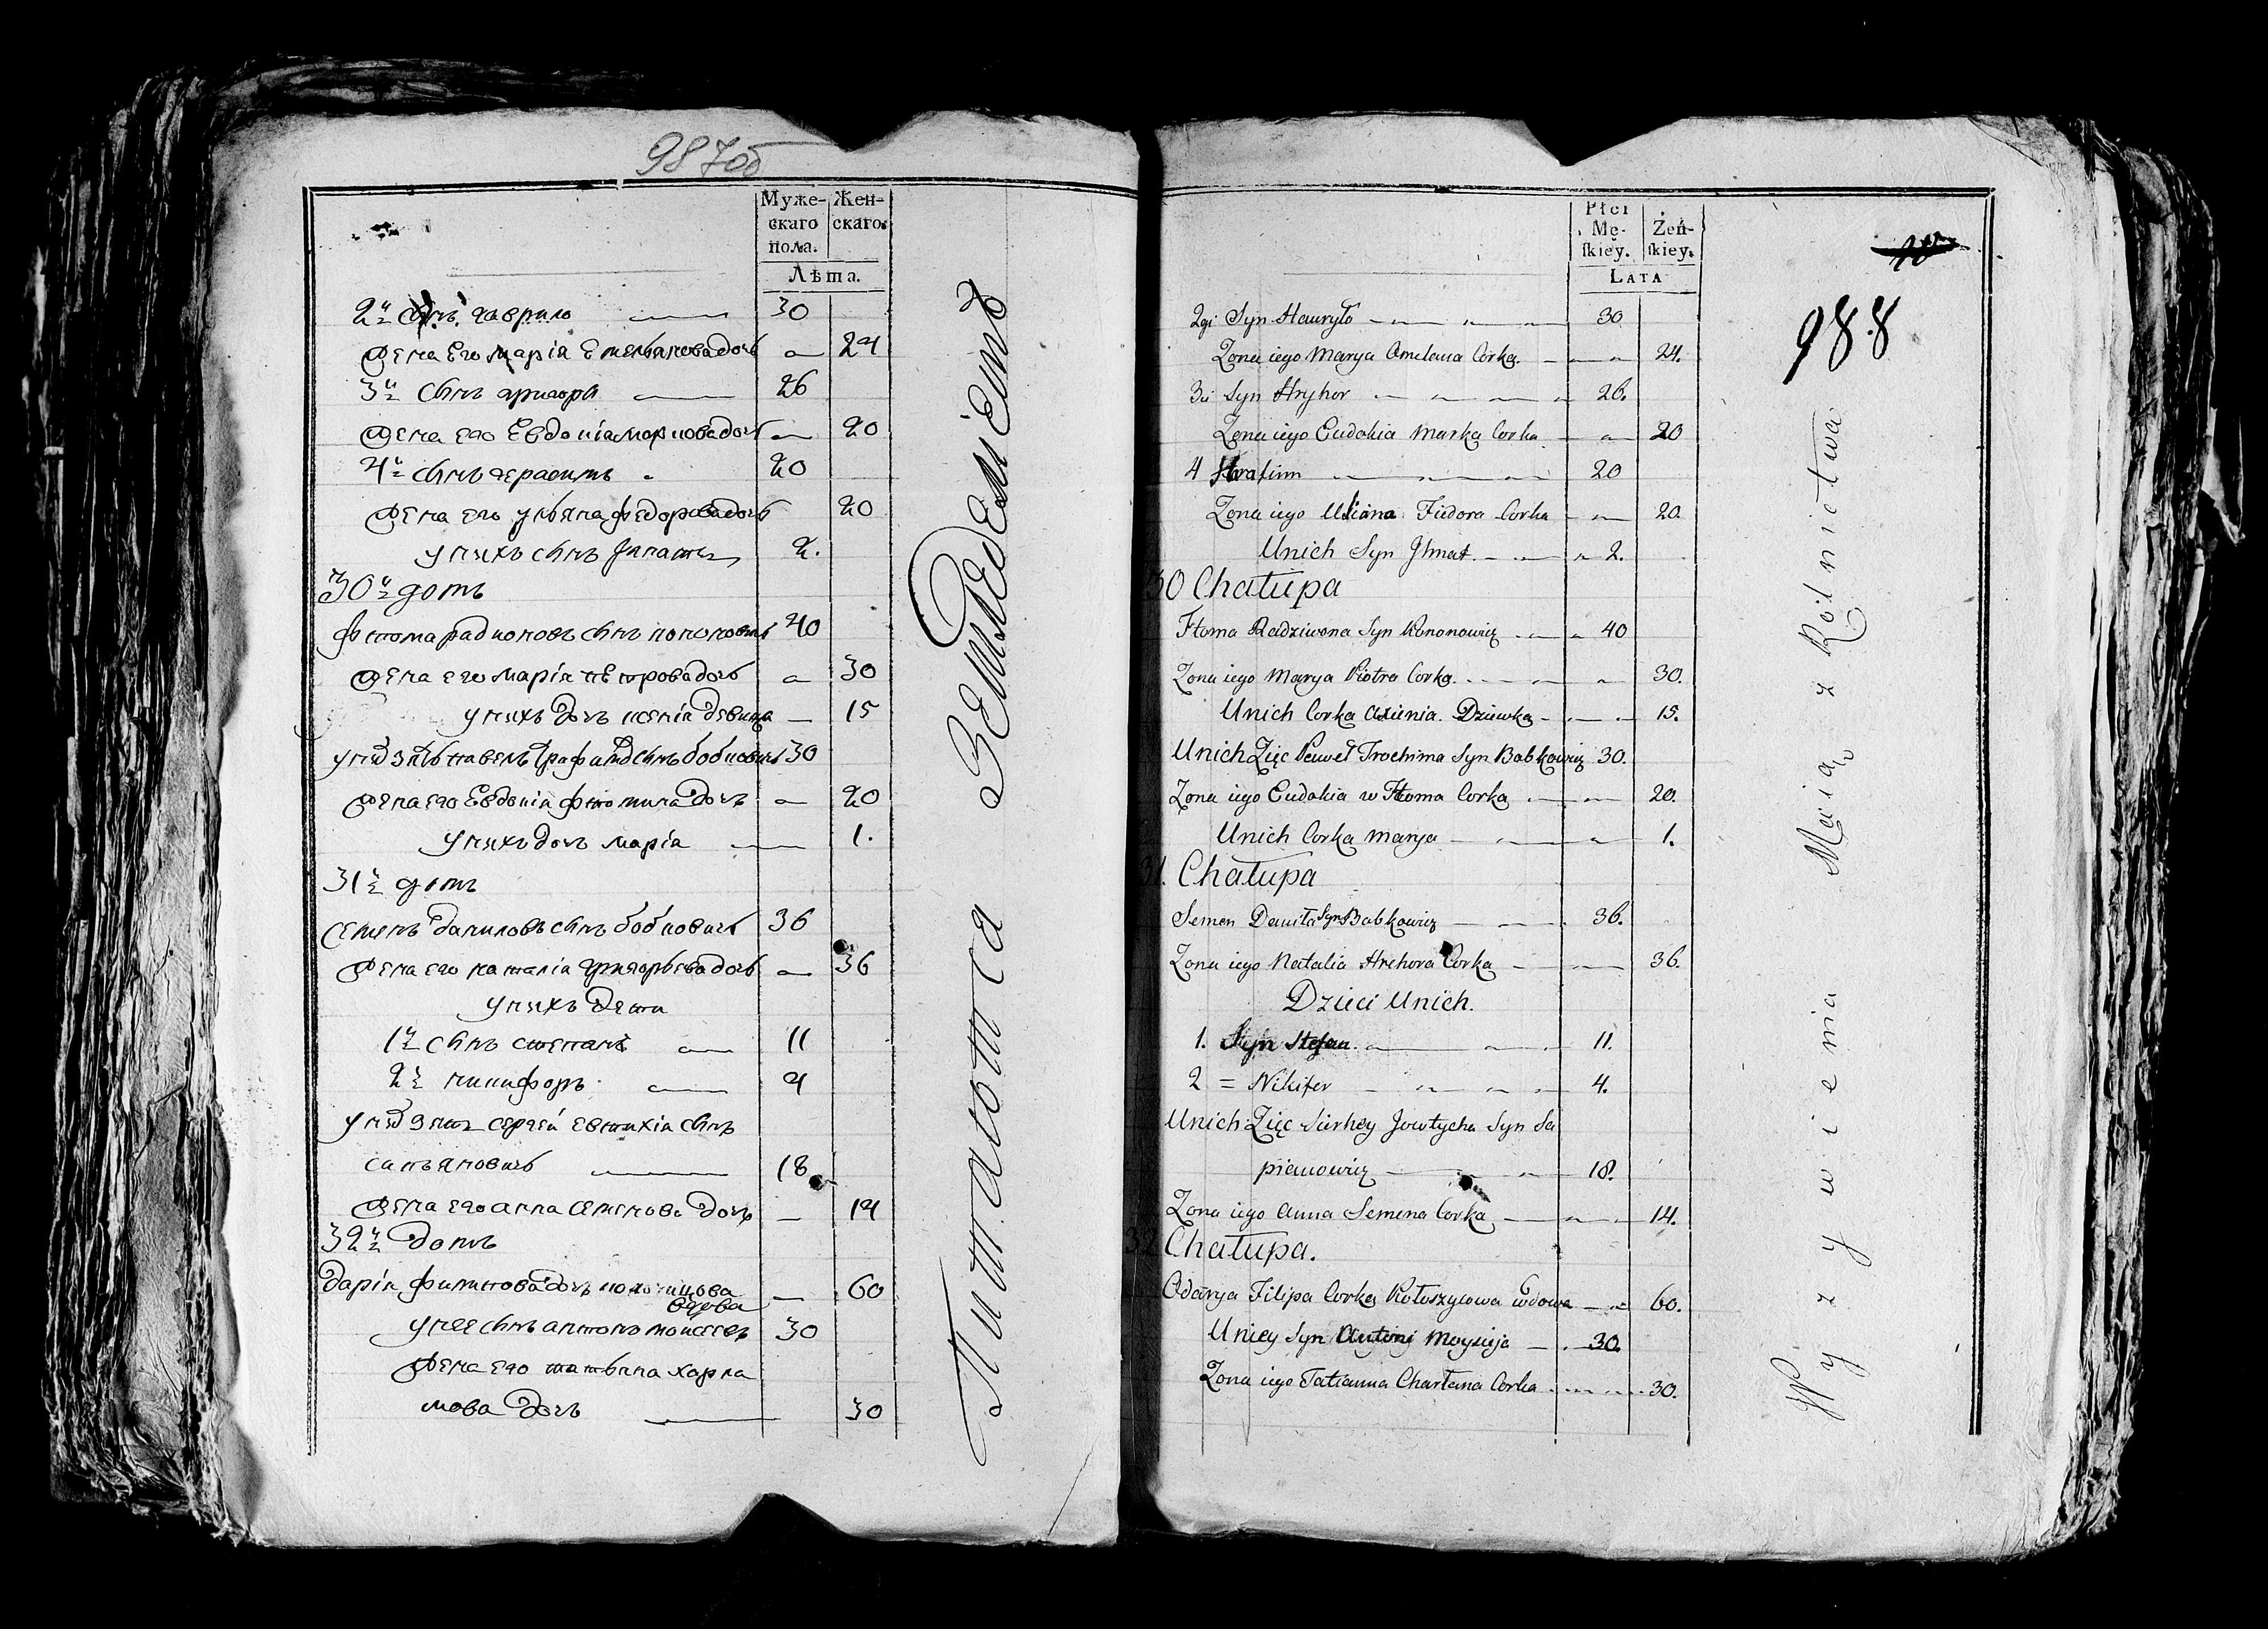 987об
Муже-
скаго
пола.
Жен-
скаго.
Лѣта.
2й сынъ гаврило 30
жена Его марія Емельянова дочь 24
3й сынъ григори 26
жена его Евдокія маркова дочь 20
4й сынъ герасимъ 20
жена его ульяна федорова дочь 20
у нихъ сынъ 2.
30й домъ
фтома радионовъ сынъ кононовичь 40
жена его марія петрова дочь 30
у нихъ дочь ксенія девица 15
у них зять павелъ сынъ бобковичь 30
жена его Евдокія фтомина дочь 20
у нихъ дочь марія 1.
31й домъ
семенъ даниловъ сынъ бобковичь 36
жена его наталія григорьева дочь 36
у нихъ дети
1й сынъ степанъ 11
2й никифоръ 4
у них зять сергей евтихія сынъ
сапьяновичь 18
жена его анна семенова дочь 14
32й домъ
дарія филипова дочь
вдова 60
у нея сынъ антонъ моисеевъ 30
жена его татьяна харла
мова дочь 30
Питаются Земледелиемъ
Płci
Mę-
ſkiey.
Żeń-
ſkiey.
LATA
988
2gi Syn Hauryło 30
Zona iego Marya Omelana Corka 24.
3ci Syn Hryhor 26.
Zona iego Eudokia Marka Corka 20
4 Harasim 20
Zona iego Uliana Fiedora Corka 20.
Unich Syn Ihnat 2.
30 Chałupa
Ftoma Radziwona Syn Kononowicz 40
Zona iego Marya Piotra Corka 30.
Unich Corka Axienia Dziewka 15.
Unich Zięc Pauweł Trochima Syn Babkowicz 30.
Zona iego Eudokia w Ftoma Corka 20.
Unich Corka Marya 1.
31. Chałupa
Semen Daniła Syn Babkowicz 36.
Zona iego Natalia Hrehora Corka 36.
Dzieci Unich.
1. Syn Stefan 11.
2 = Nikifer 4.
Unich Zięc Sierhey Jowtycha Syn Sa
pianowicz 18.
Zona iego Anna Semena Corka 14.
32 Chałupa.
Odarya Filipa Corka Kołoszycowa wdowa 60.
Uniey Syn Antoni Moyzieja 30.
Zona iego Tatianna Charłana Corka 30.
Wyzywienia Maią z Rolnictwa